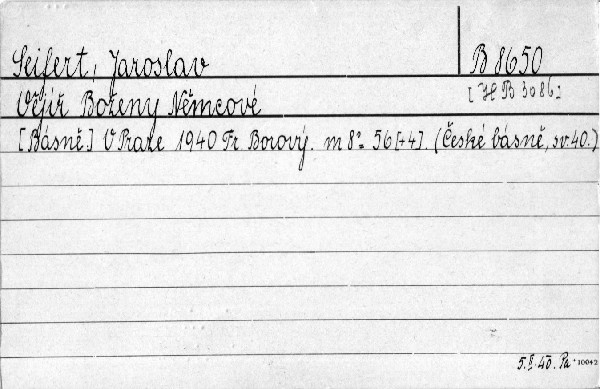 Seifert, Jaroslav
B 8650
Vějíř Boženy Němcové
[HB 3086]
[Básně.] V Praze 1940 Fr. Borový. m 8° 56[+4]. (České básně, sv. 40.)
5.II.40. Pa *10042